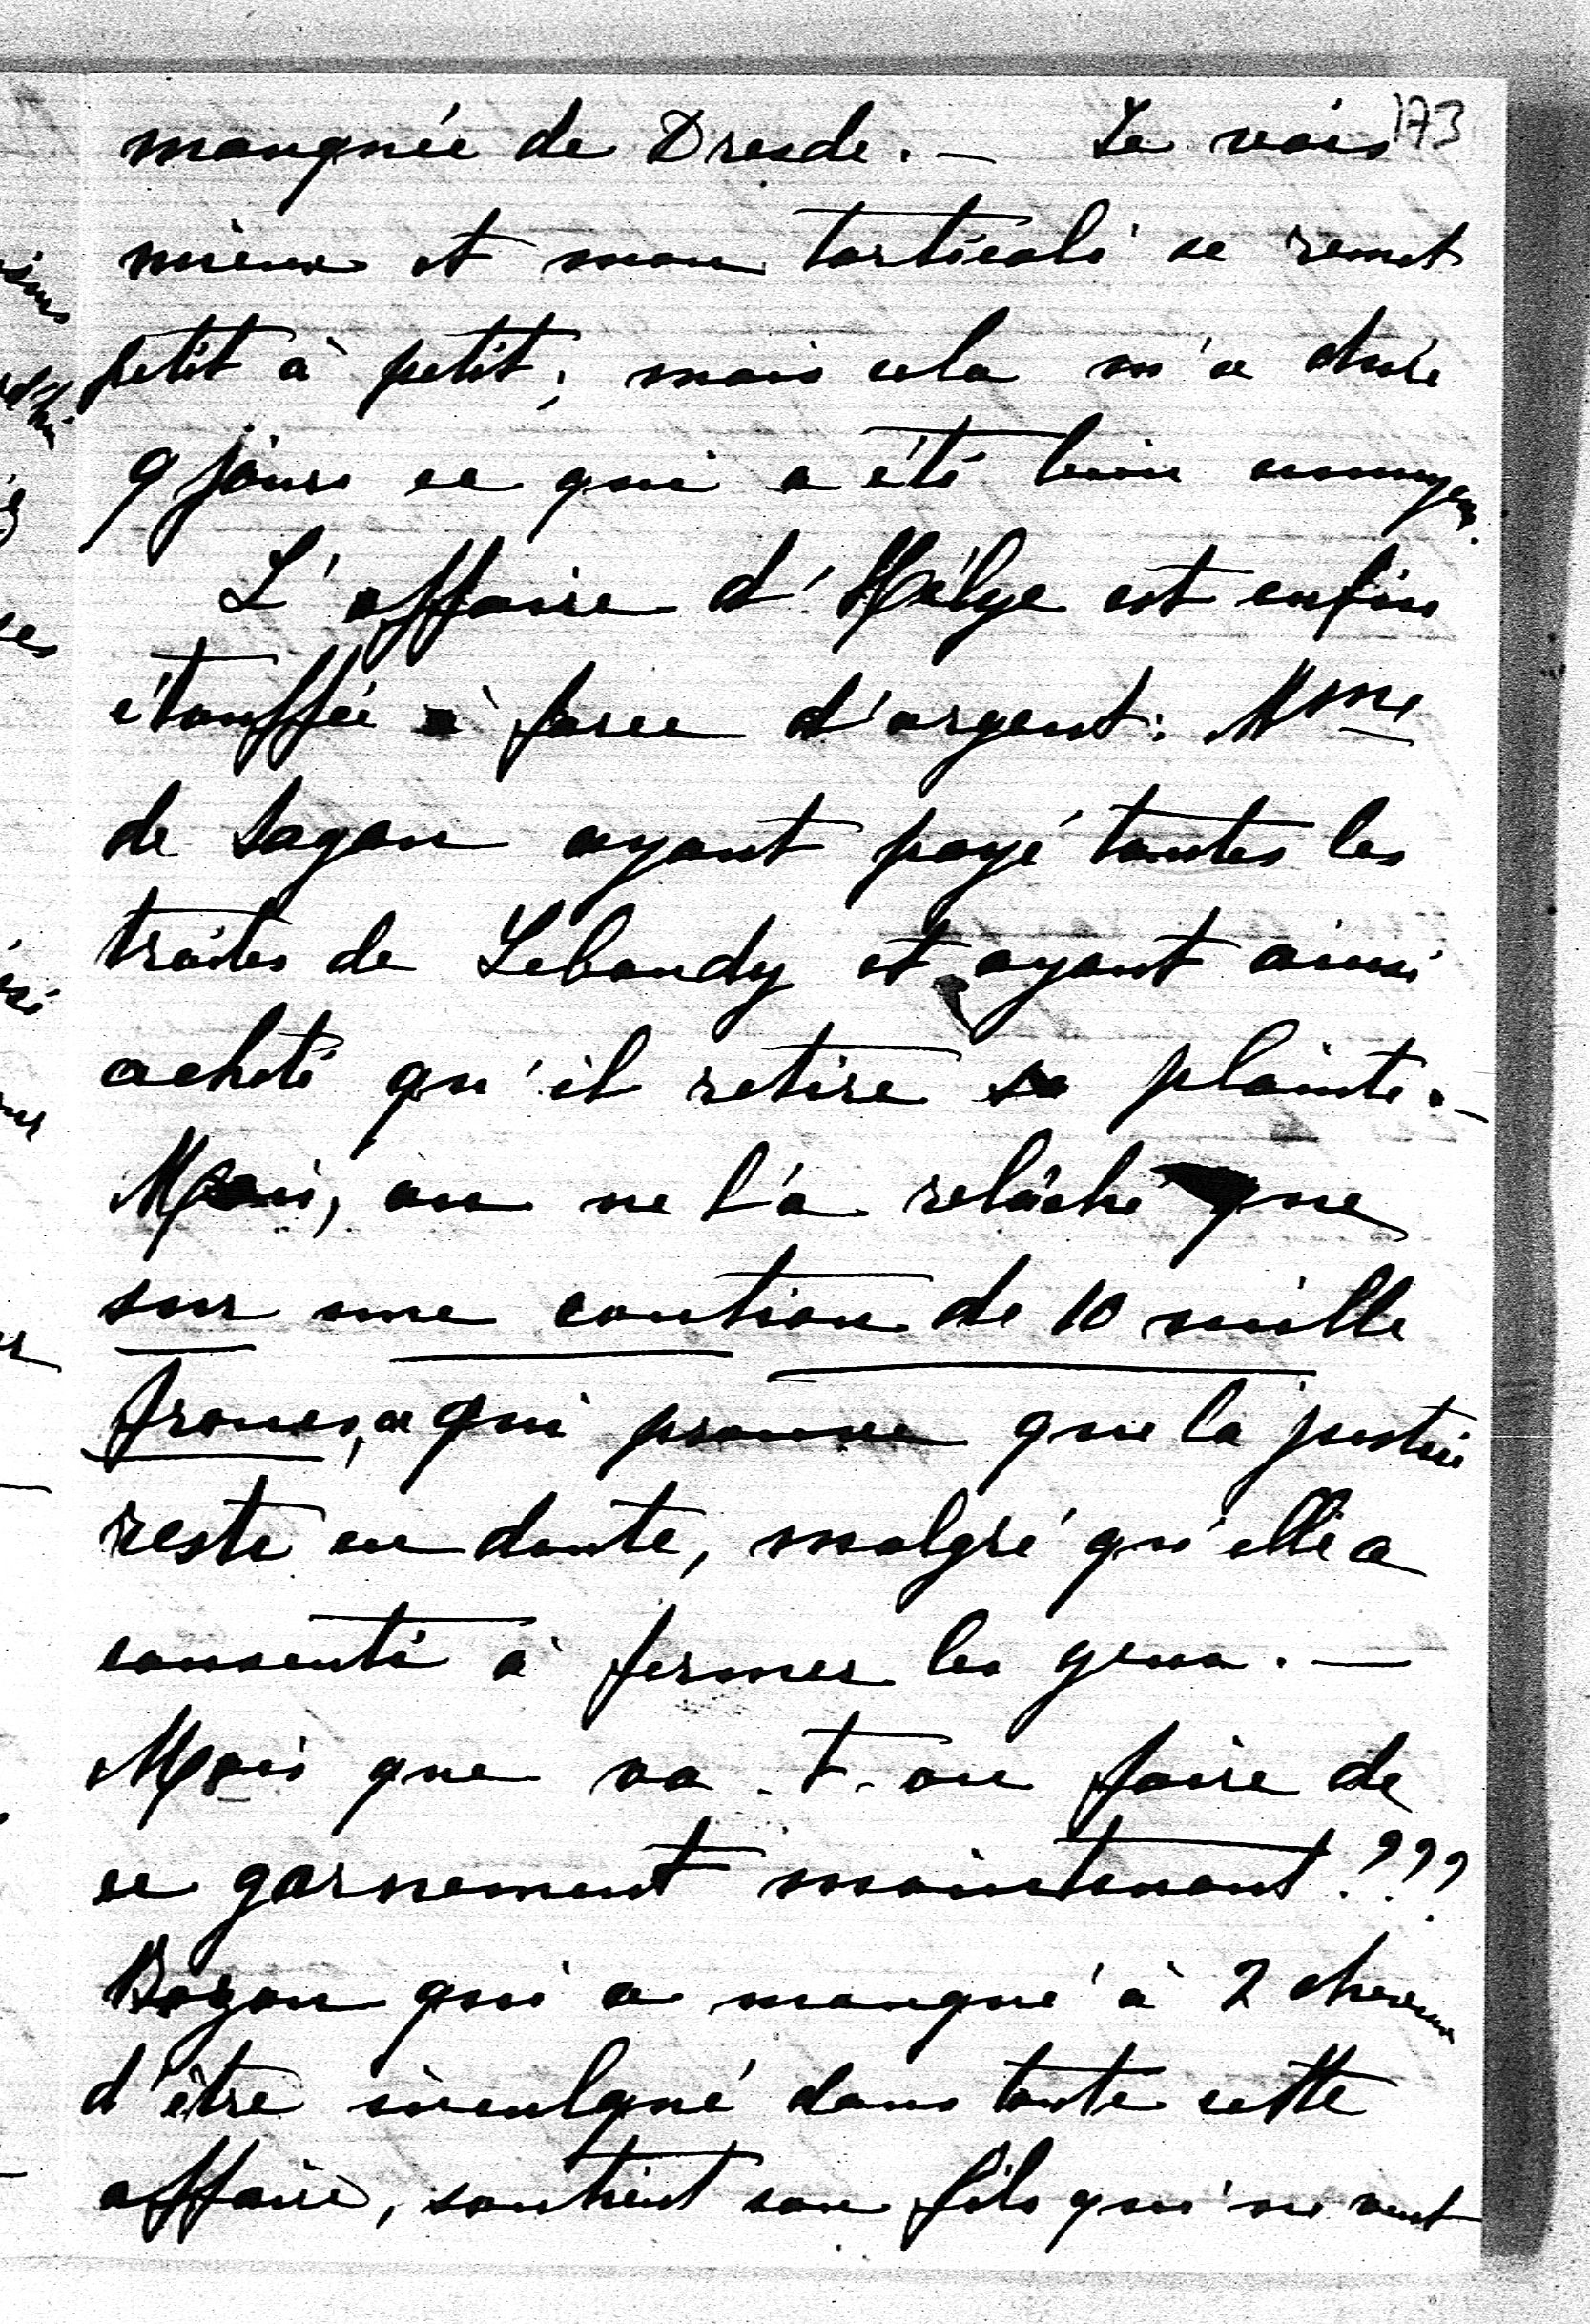 173
manquée de Dresde. — Je vais
mieux et mon torticoli se remet
petit à petit; mais cela m'a duré
9 jours ce qui a été bien ennuyeux.
L'affaire d'Hélye est enfin
étouffée à force d'argent: Mme
de Sagan ayant payé toutes les
traites de Lebaudy et ayant ainsi
acheté qu'il retire sa plainte. —
Mais, on ne l'a relâché que
sur une caution de 10 mille
francs, ce qui prouve que la justice
reste en doute, malgré qu'elle a
consenti à fermer les yeux. —
Mais que va-t-on faire de
ce garnement maintenant???
Bozon qui a manqué à 2 cheveux
d'être inculqué dans toute cette
affaire, soutient son fils qui ne veut